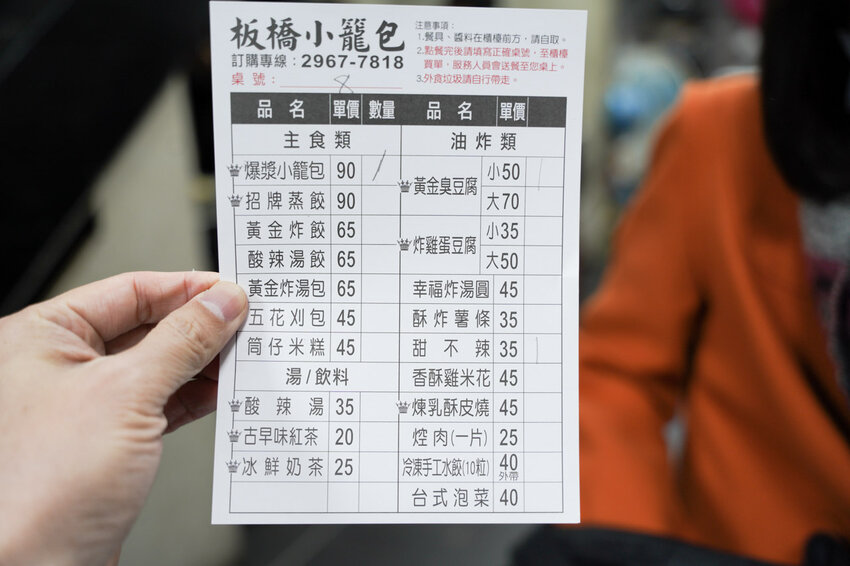 板橋小籠包
訂購專線：2967-7818
桌號：8
注意事項：
1.餐具、醬料在櫃檯前方，請自取。
2.點餐完後請填寫正確桌號，至櫃檯
買單，服務人員會送餐至您桌上。
3.外食垃圾請自行帶走。
品名 單價 數量
主食類
爆漿小籠包 90 /
招牌蒸餃 90
黃金炸餃 65
酸辣湯餃 65
黃金炸湯包 65
五花刈包 45
筒仔米糕 45
湯/飲料
酸辣湯 35
古早味紅茶 20
冰鮮奶茶 25
品名 單價
油炸類
黃金臭豆腐 小50 |
大70
炸雞蛋豆腐 小35
大50
幸福炸湯圓 45
酥炸薯條 35
甜不辣 35 |
香酥雞米花 45
煉乳酥皮燒 45
焢肉(一片) 25
冷凍手工水餃(10粒) 40
外帶
台式泡菜 40